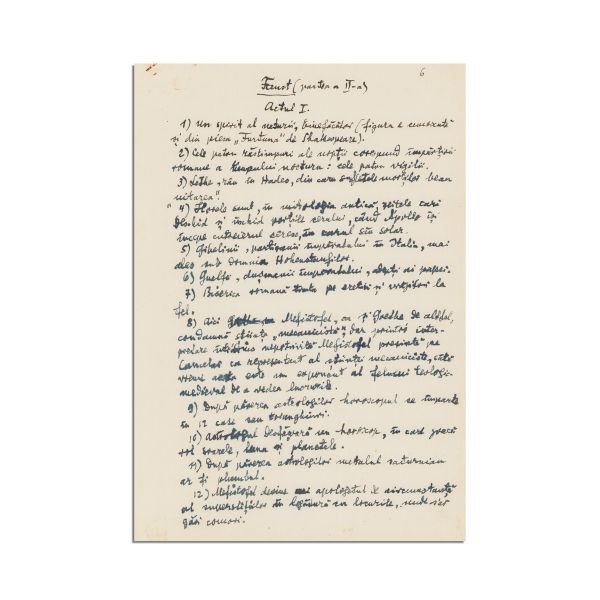 6
Faust (partea II-a)
Actul I.
1) Un spirit al naturii, binefăcător (figura e cunoscută
și din piesa „Furtuna" de Shakespeare).
2) Cele patru răstimpuri ale nopții corespund împărțirii
romane a timpului nocturn: cele patru vigilii.
3) Lethe, rîu în Hades, din care sufletele morților beau
uitarea".
4) Horele sunt, în mitologia antică, zeițele care
deschid și închid porțile cerului, când Apollo își
începe cutreierul ceresc, în carul său solar.
5) Gibelinii, partizanii împăratului în Italia, mai
ales sub domnia Hohenstaufilor.
6) Guelfii, dușmanii împăratului, adepți ai papei.
7) Biserica romană trata pe eretici și vrăjitori la
fel.
8) Aici Mefistofel, ca și Goethe de altfel,
condamnă știința „mecanicistă", dar printr-o inter-
pretare nepotrivită Mefistofel prezintă pe
Cancelar ca reprezentant al științei mecaniciste, câtă
vreme acesta este un exponent al felului teologic
medieval de a vedea lucrurile.
9) După părerea astrologilor horoscopul se împarte
în 12 case sau triunghiuri.
10) Astrologul desfășoară un horoscop, în care joacă
rol soarele, luna și planetele.
11) După părerea astrologilor metalul saturnian
ar fi plumbul.
12) Mefistofel devine aci apologetul de circumstanță
al superstițiilor în legătură cu locurile, unde s-ar
găsi comori.